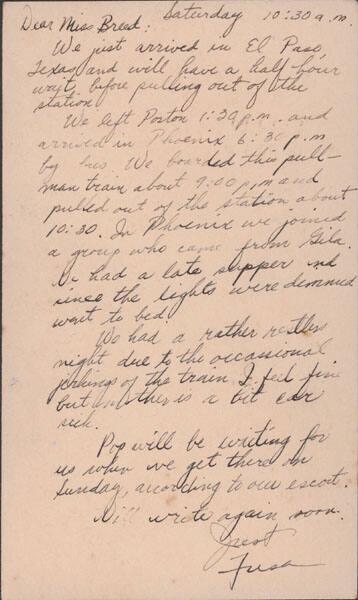 Saturday 10:30 a.m.
Dear Miss Breed:
We just arrived in El Paso,
Texas and will have a half hour
wait before pulling out of the
station.
We left Poston 1:30 p.m. and
arrived in Phoenix 6:30 p.m
by bus. We boarded this pull-
man train about 9:00 p.m and
pulled out of the station about
10:30. In Phoenix we joined
a group who came from Gila.
We had a late supper and
since the lights were dimmed
went to bed.
We had a rather restless
night due to the occasional
jerkings of the train. I feel fine
but mother is a bit car
sick.
Pop will be waiting for
us when we get there on
Sunday, according to our escort.
Will write again soon.
Just